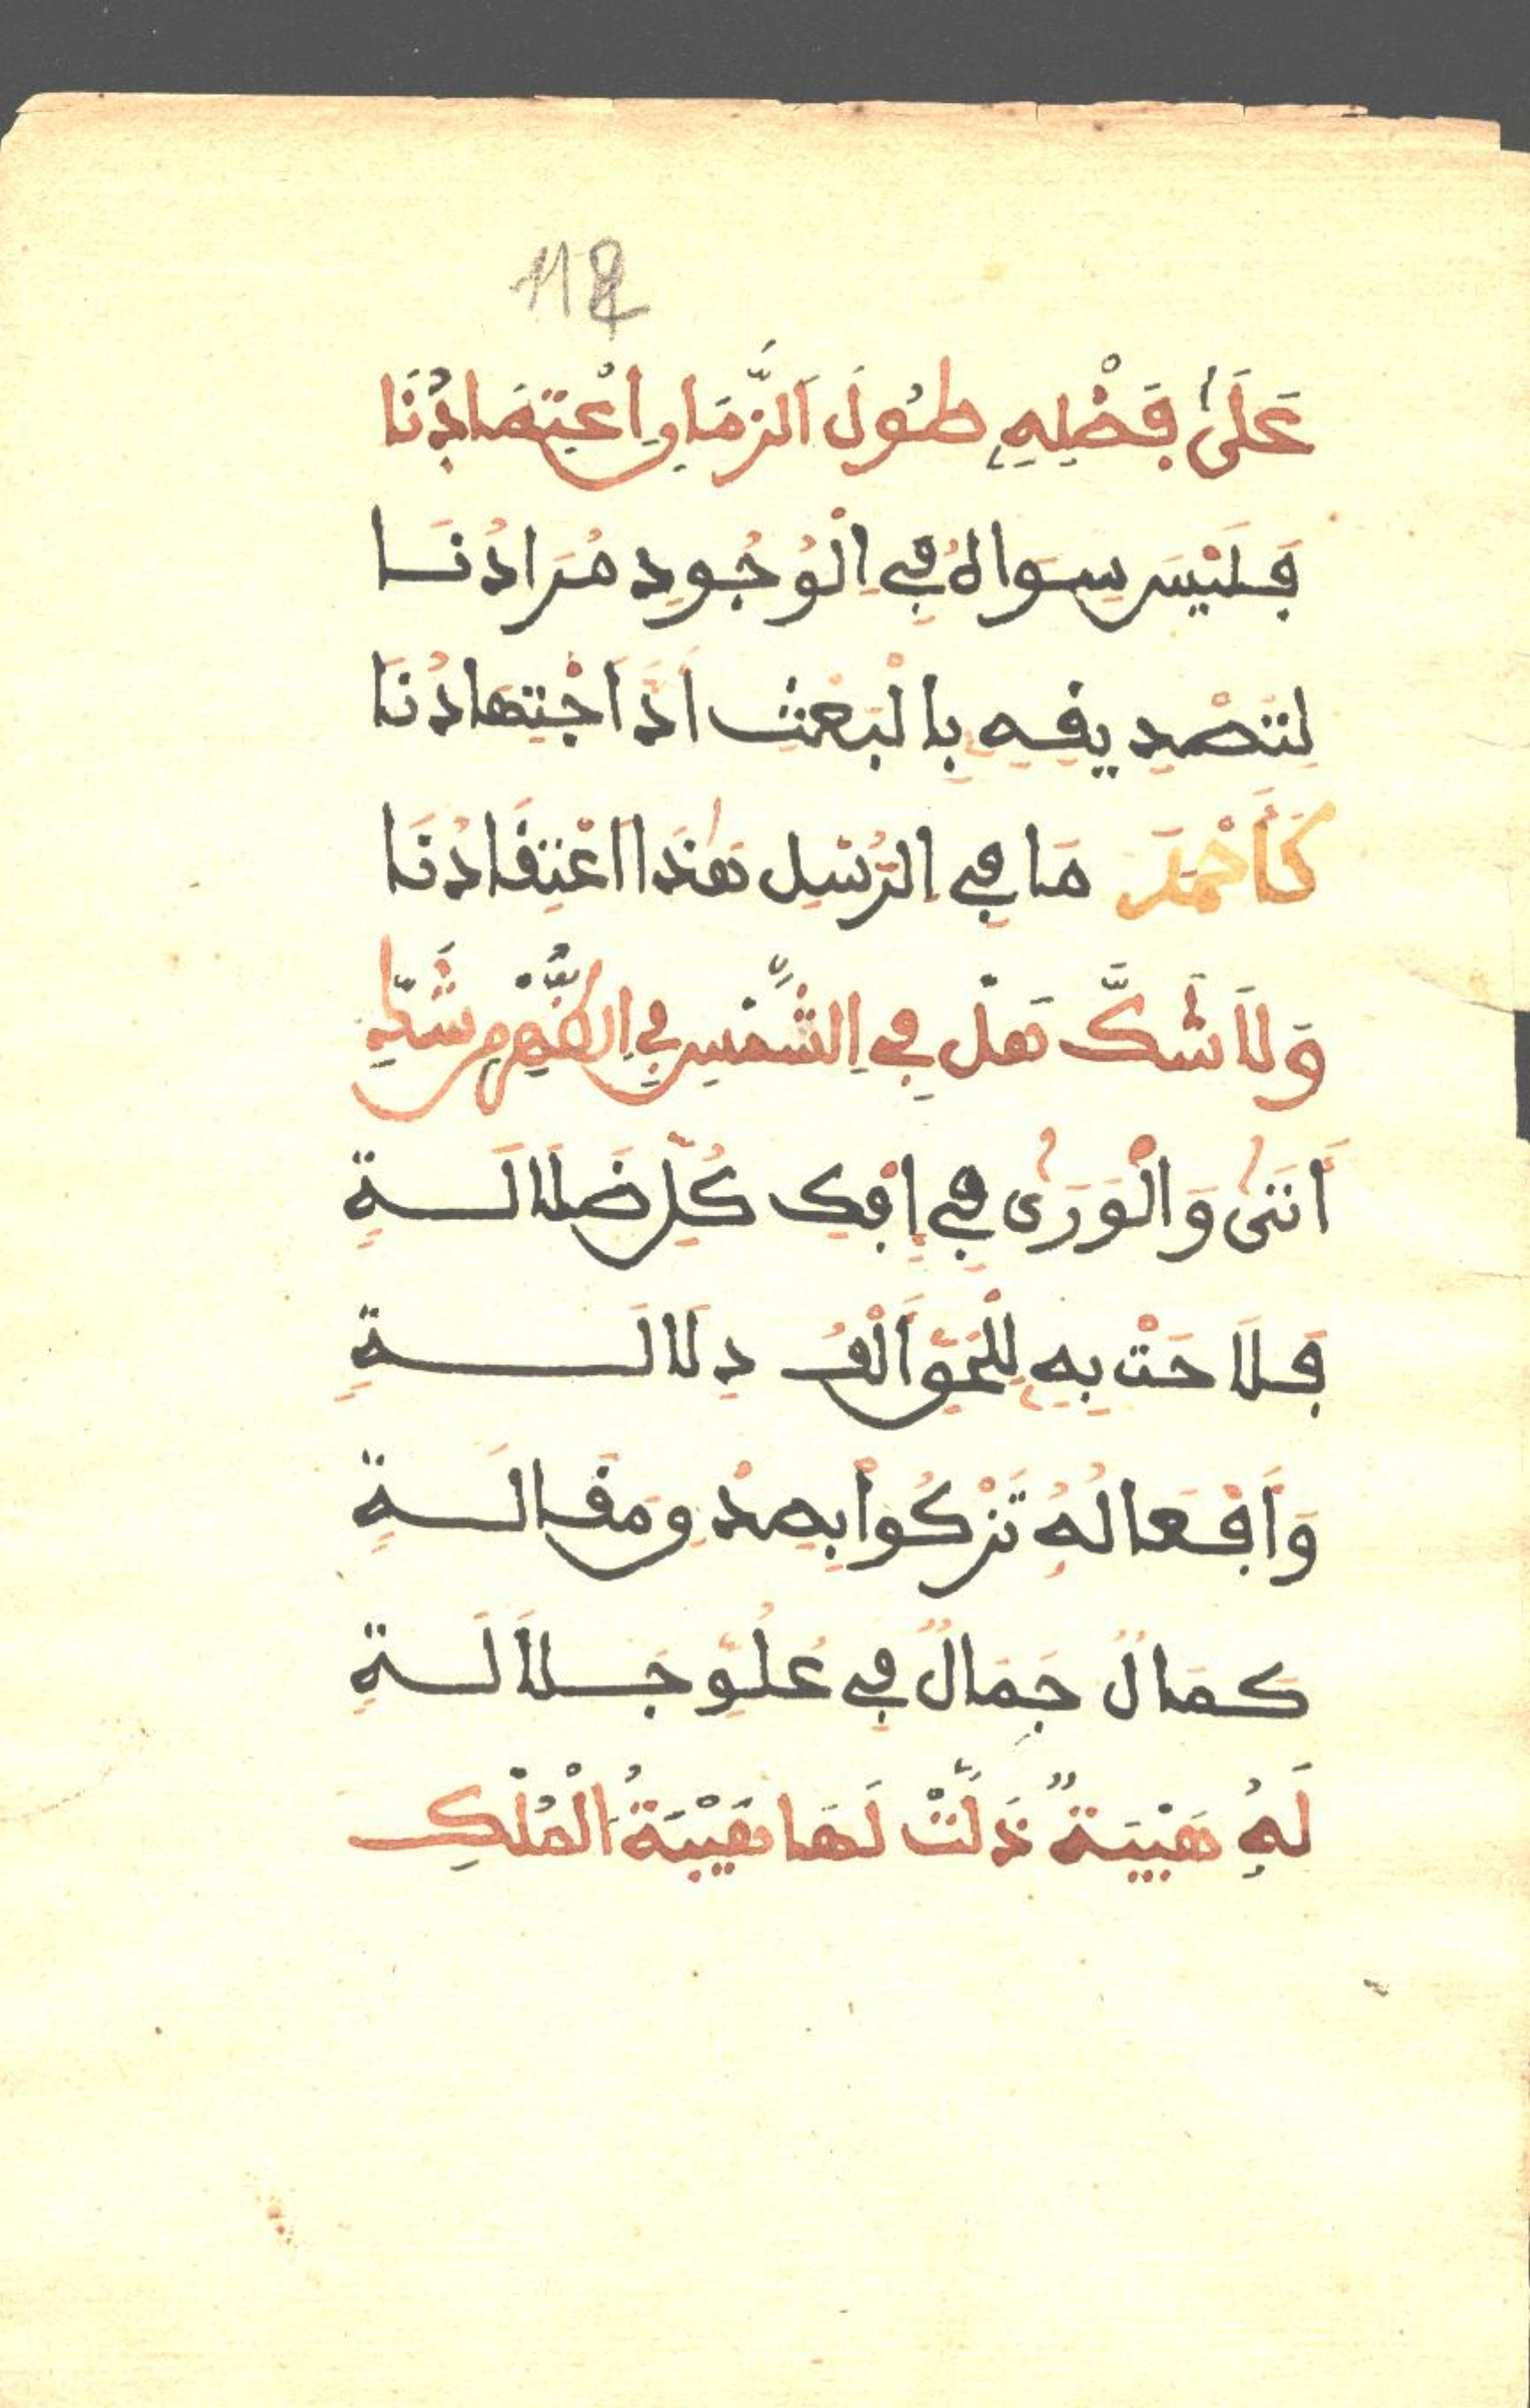 112
عَلَىٰ فَضْلِهِ طُولَ الزَّمَانِ اعْتِمَادُنَا
فَلَيْسَ سِوَاهُ فِي الْوُجُودِ مُرَادُنَا
لِتَصْدِيقِهِ بِالْبَعْثِ أَدَّ اجْتِهَادُنَا
كَأَحْمَدَ مَا فِي الرُّسْلِ هَٰذَا اعْتِقَادُنَا
وَلَا شَكَّ هَلْ فِي الشَّمْسِ فِي الظُّهْرِ مِنْ شَكِّ
أَتَىٰ وَالْوَرَىٰ فِي إِفْكِ كُلِّ ضَلَالَةِ
فَلَاحَتْ بِهِ لِلْحَقِّ أَلْفُ دِلَالَةِ
وَأَفْعَالُهُ تَزْكُوا بِصِدْقِ مَقَالَةِ
كَمَالٌ جَمَالٌ فِي عُلُوِّ جَلَالَةِ
لَهُ هَيْبَةٌ ذَلَّتْ لَهَا هَيْبَةُ الْمُلْكِ